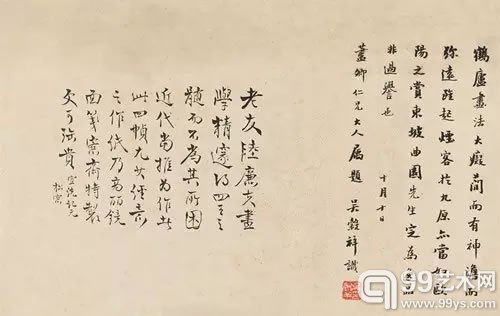 鶴廬畫法大癡簡而有神澹而
弥遠雖起煙客於九原亦當
陽之賞東坡曲園先生定為逸品
非過譽也
十月十日
蓋卿仁兄大人屬題 吳穀祥識
老友陸廉夫畫
學精邃得四王之
髓而不為其所囿
近代當推為作此
此四幀尤其經意
之作紙乃高丽鏡
面箋窓齋特製
尤可珍貴
99艺术网
www.99ys.com